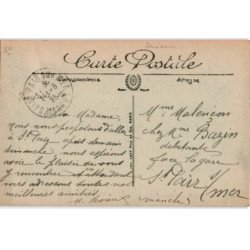 Carte Postale
Correspondance
Adresse
Chère Madame
Nous nous proposons d'aller
à St Pair après demain
dimanche nous espérons
avoir le plaisir de vous
y rencontrer et
vous adressons toutes nos
meilleures amitiés
Mme Malençon
chez Mme Bazin
débitante
face la gare
St Pair s/mer
manche